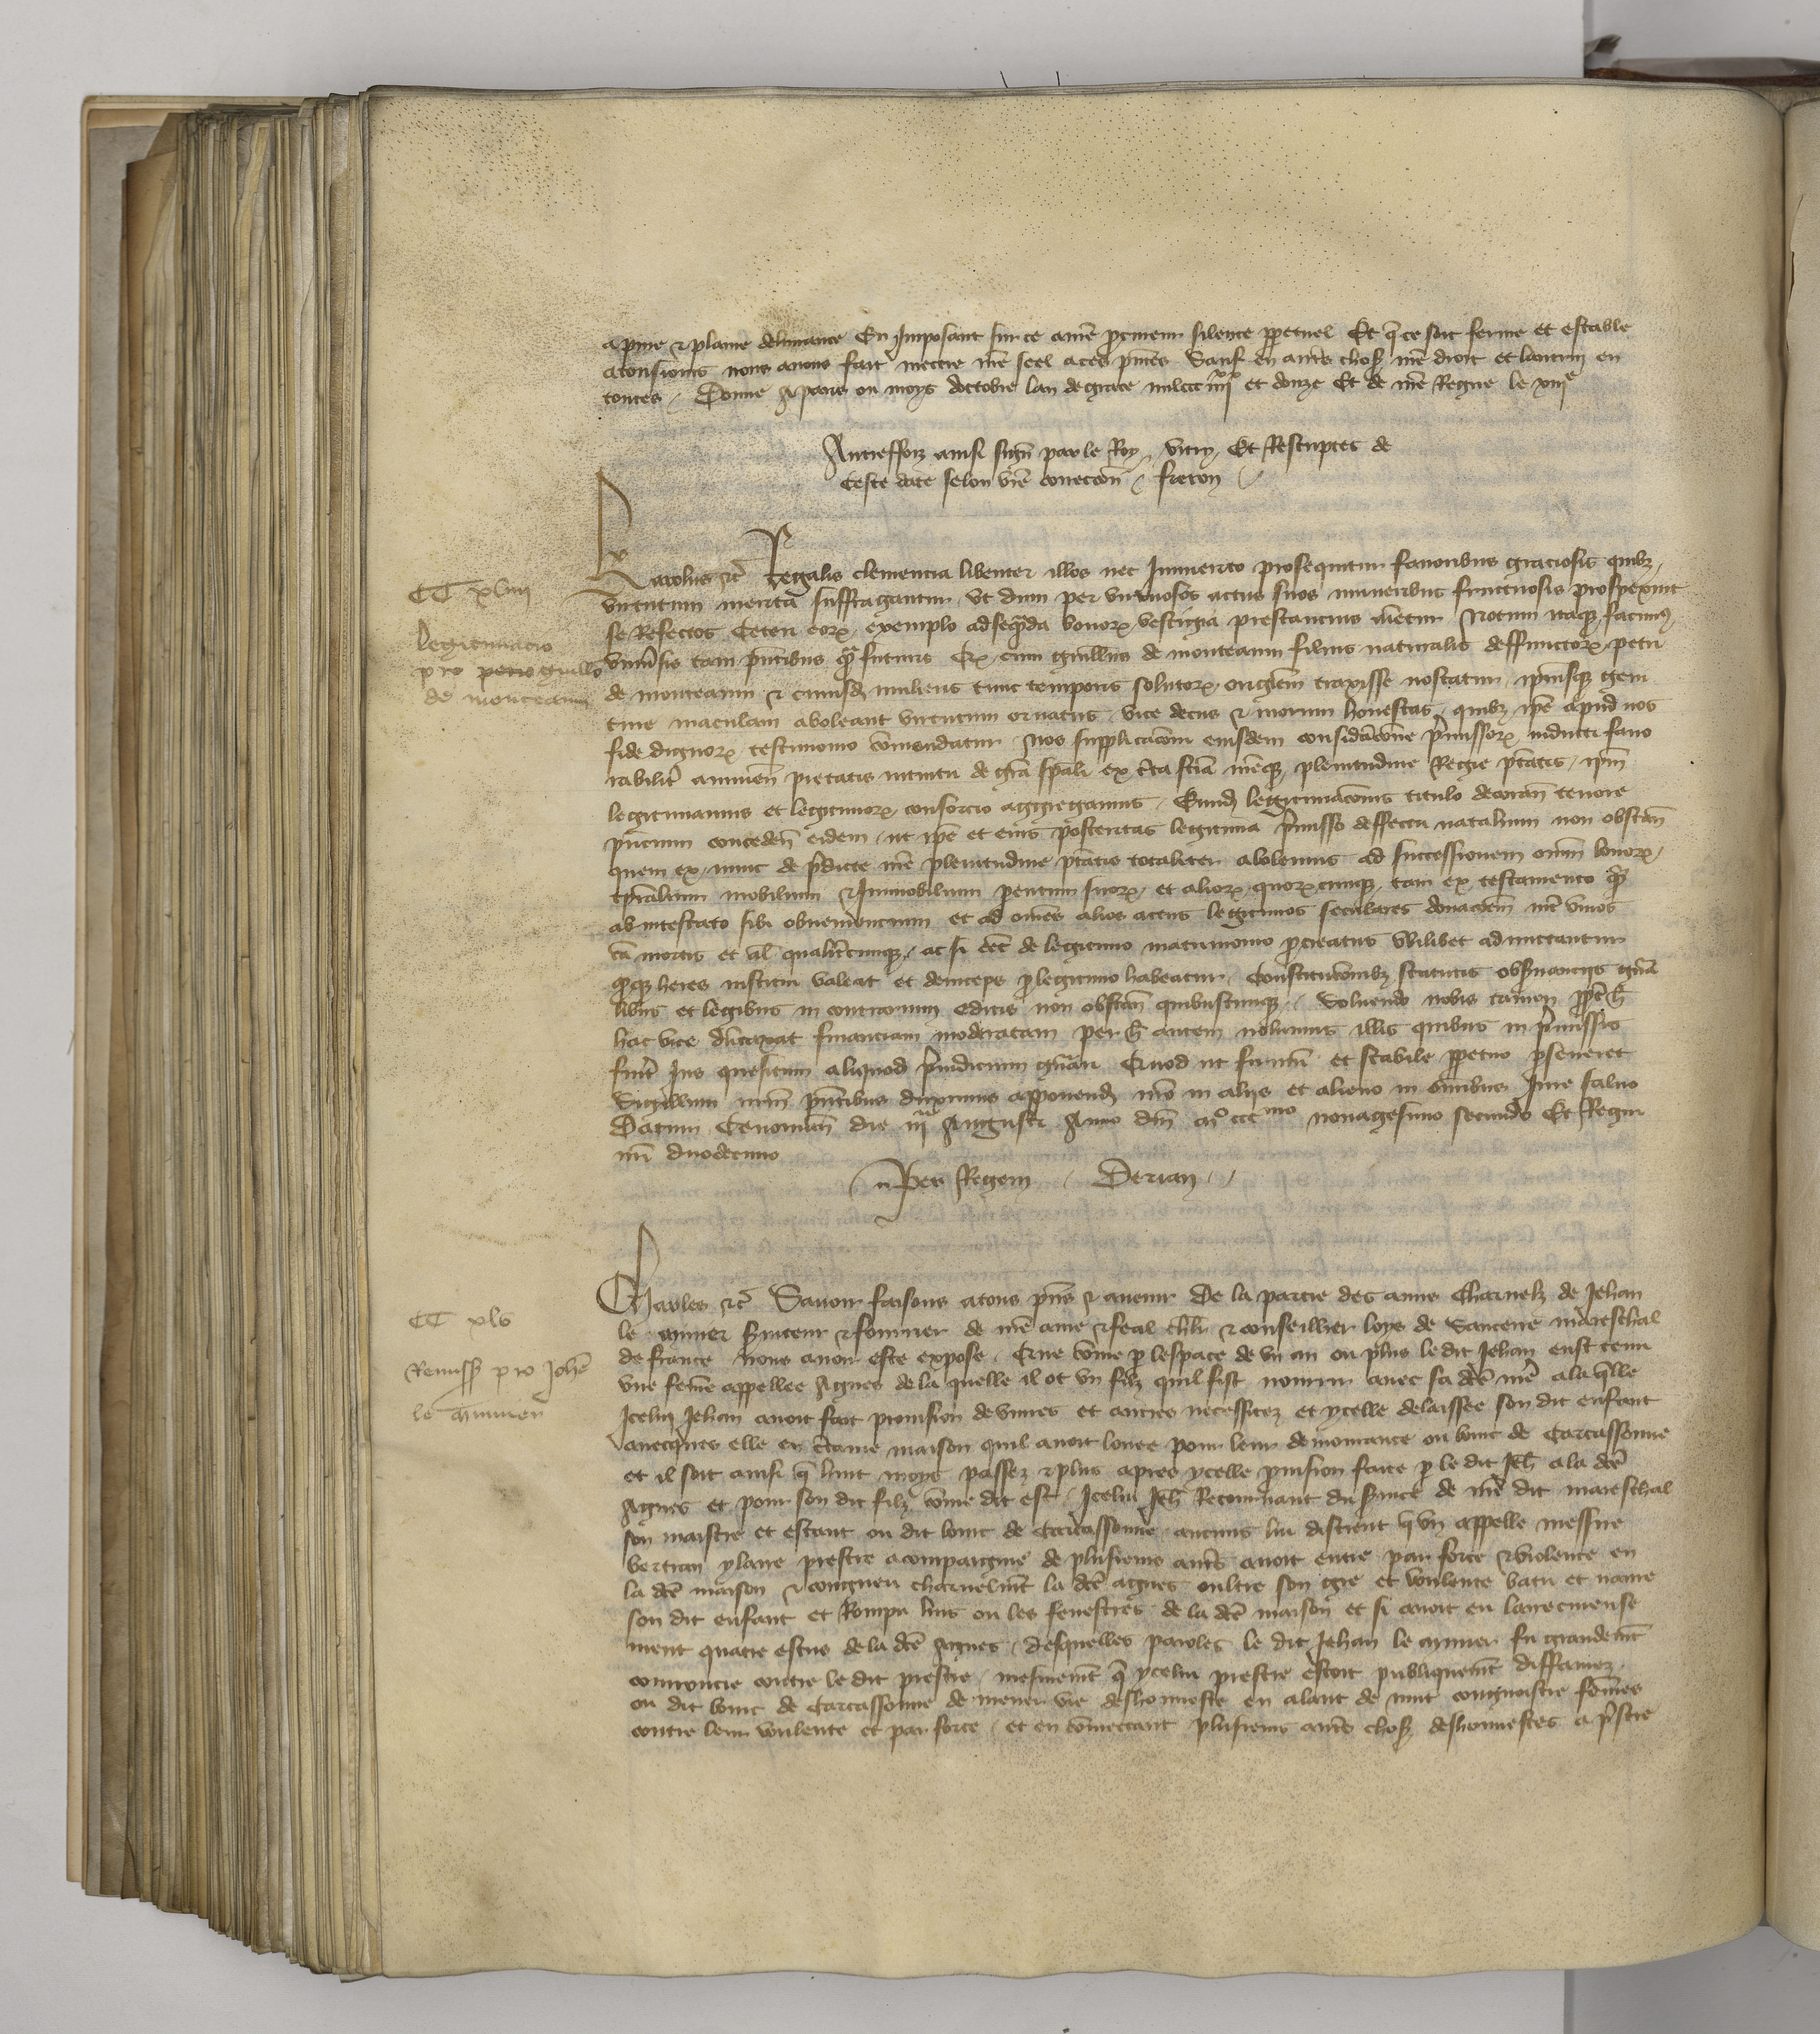 a pure et plaine delivrance En Imposant sur ce a nr̄e procureur silence ꝑpetuel Et q̄ ce soit ferme et estable
a tousiours nous avons fait mectre nr̄e seel a ces pn̄tes Sauf en autr̄s choses nr̄e droit et lautruy en
toutes Donne A paris ou moys doctobre lan de grace mil ccc iiii xx et douze Et de nr̄e Regne le xiii e
Autreffoiz ainsi sign̄ par le Roy vitry Et Rescriptes de
Ceste date selon vr̄e correccōn freron
Karolus etc̄ Regalis clemencia libenter illos nec Immerito prosequitur favoribus graciosis quibꝫ
virtutum merita suffragantur ut dum per virtuosos actus suos muneribus fructuosis prospexerint
se Refectos Ceteri eoꝝ exemplo ad seq̄nda bonoꝝ vestigia prestancius Notum itaqꝫ facimꝰ
univ̄sis tam pn̄tibus qͣm futuris Qꝫ cum guill̄ms de monteanni filius naturalis deffunctoꝝ petri
de monteanni et cuiusd̄ mulieris tunc temporis solutoꝝ originem traxisse noscatur ip̄umsqꝫ geni
ture maculam aboleant virtutum ornatus vite decus et morum honestas quibꝫ ip̄e apud nos
fide dignoꝝ testimonio cōmendatur Nos supplicacōni eiusdem consideracōne p̄missoꝝ inducti favo
rabilit̄ annuen̄ pietatis intuitu de gr̄a sp̄ali ex c̄ta scīa nr̄eqꝫ plenitudine Regie p̄tatis ip̄m
legitimamus et legitimoꝝ consorcio aggregamus Eund̄ legitimacōnis titulo decoran̄ tenore
pn̄cium conceden̄ eidem ut ip̄e et eius posteritas legitima p̄misso deffectu natalium non obstan̄
quem ex nunc de p̄dicte nr̄e plenitudine p̄tatis totaliter abolemus ad successionem om̄m bonoꝝ
tp̄ralium mobilium et Immobilium parentum suoꝝ et alioꝝ quoꝝcumqꝫ tam ex testamento qͣm
ab intestato sibi obveniencium et ad omn̄es alios actus legitimos seculares donacōem int̄ vivos
cā mortis et al̄ qualit̄cumqꝫ ac si eēt de legitimo matrimonio procreatus ubilibet admittantur
qͣqꝫ heres institui valeat et deinceps ꝓ legitimo habeatur Constitucōnibꝫ statutis observanciis gn̄a
libus et legibus in contrarium editis non obstan̄ quibuscumqꝫ Solvendo nobis tamen ꝓpt̄ h̄
hac vice dūtaxat financiam moderatam per h̄ autem nolumus illis quibus in p̄missis
fuer̄it Ius quesitum aliquod p̄iudicium gn̄ari Quod ut firmū et stabile ꝑpetuo ꝑseveret
Sigillum nr̄m pn̄tibus duximus apponend̄ nr̄o in aliis et alieno in om̄ibus Iure salvo
Datum Cenoman̄ die iii Augusti Anno dn̄i m° ccc mo nonagesimo secundo Et Regni
nr̄i duodecimo
Per Regem Derian
CC xliiii
Legitimacio
pro petro guill̄o
de monteanni
Charles etc̄ Savoir faisons a tous pn̄s et avenir De la partie des amis Charnelz de Jehan
le serviteur et sommier de nr̄e ame et feal chl̄r et conseillier loys de Sancerre mareschal
de france nous avoir este expose Que cōme ꝑ lespace de un an ou plus le dit Jehan eust tenu
une femē appellee Agnes de la quelle il ot un filz quil fist nourrir avec sa dc̄e mer̄e a la q̄lle
Icelui Jehan avoit fait provision de vivres et autres necessitez et ycelle delaissee son dit enfant
avecques elle en c̄taine maison quil avoit louee pour leur demourance ou bourc de Carcassonne
et il soit ainsi q̄ huit moys passez et plus apres ycelle provision faite ꝑ le dit Jeh̄ a la dc̄e
Agnes et pour son dit filz cōme dit est Icelui Jeh̄ Retournant du service de nr̄e dit mareschal
son maistre et estant ou dit bourc de Carcassonne aucuns lui distrent q̄ un appelle messire
bertran ylaire prestre acompaigne de plusieurs autr̄s avoit entre par force et violence en
la dc̄e maison et congneu charnelmēt la dc̄e agnes oultre son gre et voulente batu et navre
son dit enfant et Rompu huis ou les fenestres de la dc̄e maison et si avoit eu larrecineuse
ment quatre escus de la dc̄e Agnes desquelles paroles le dit Jehan le fu grandemēt
courroucie contre le dit prestre mesmemēt q̄ ycelui prestre estoit publiquemēt diffamez
ou dit bourc de Carcassonne de mener vie deshonneste en alant de nuit congnoistre femēs
contre leur voulente et par force et en cōmectant plusieurs autr̄s choses deshonnestes a p̄stre
CC xlv
Remissꝫ pro Joh̄e
le